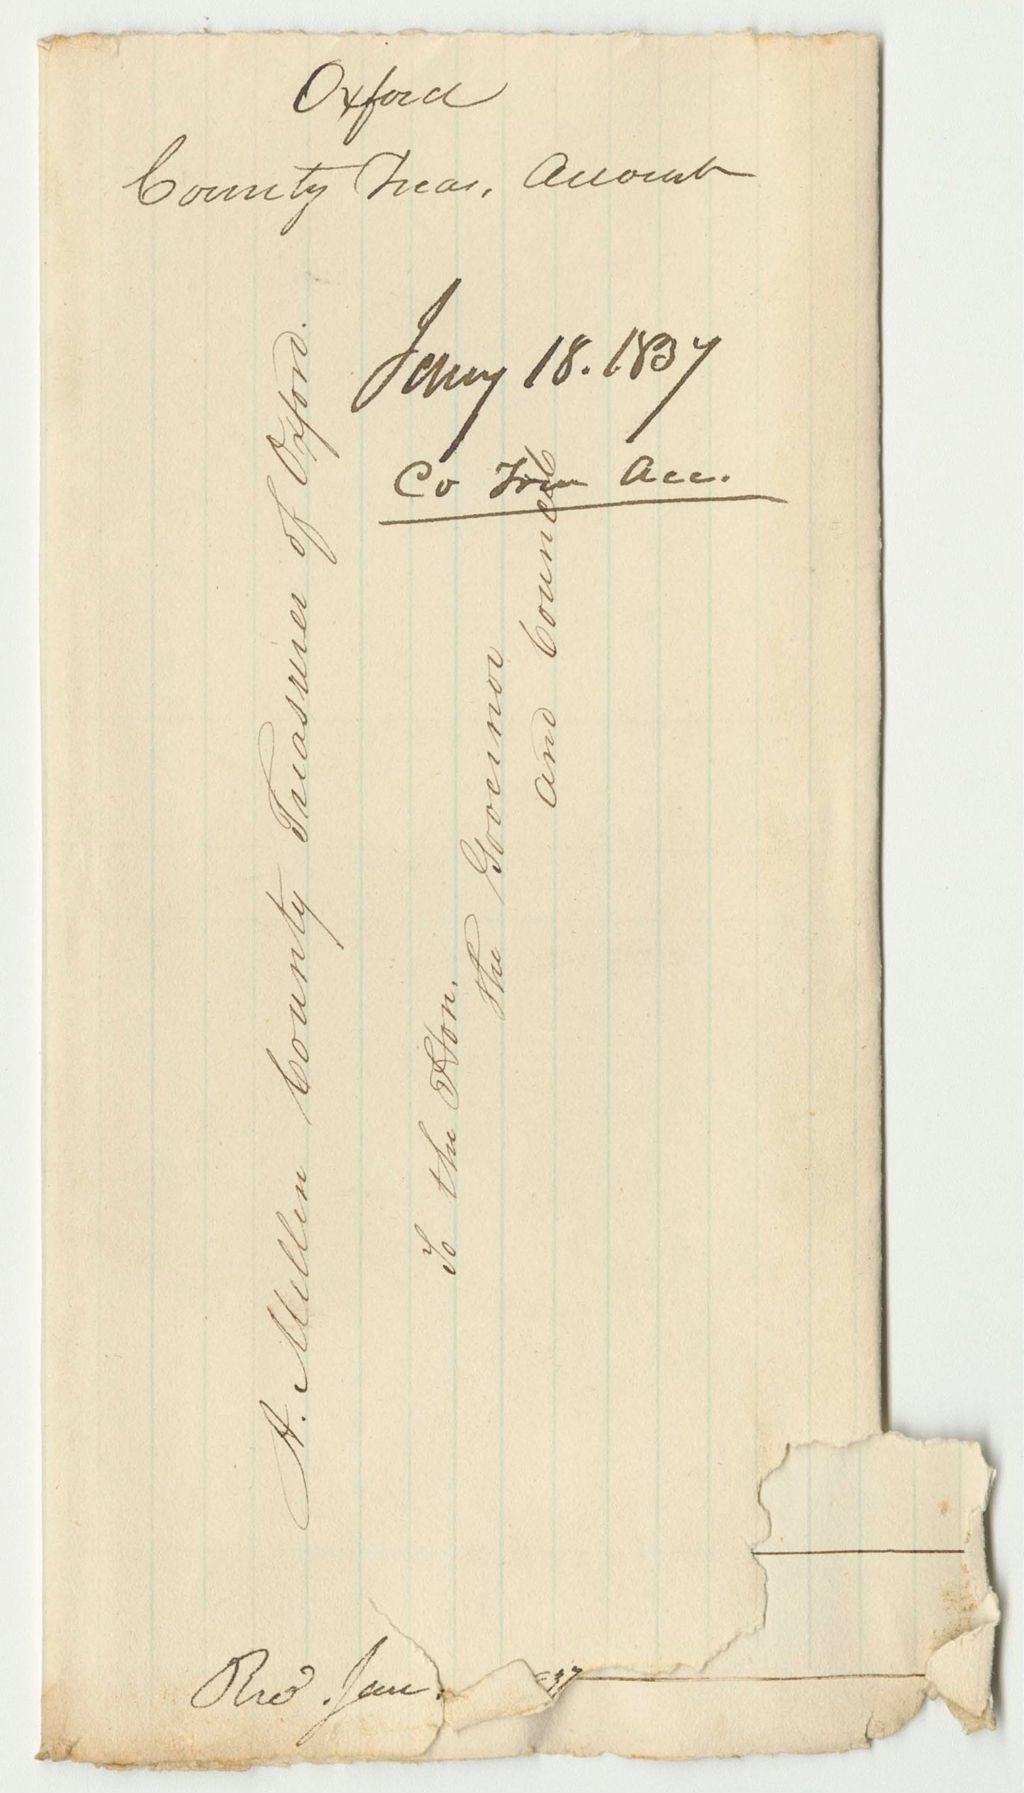 Oxford
County Treas. Account
Jany 18. 1837
Co Trea Acc.
A. Mellen County Treasurer of Oxford.
To the Hon.
the Governor
and Council
Recd. Jan.
37